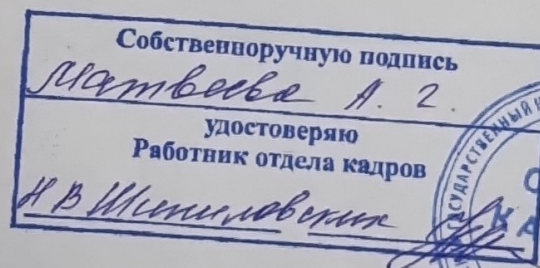 Собственноручную подпись
Матвеева А. Г.
удостоверяю
Работник отдела кадров
Н В Шипиловских
ГОСУДАРСТВЕННЫЙ